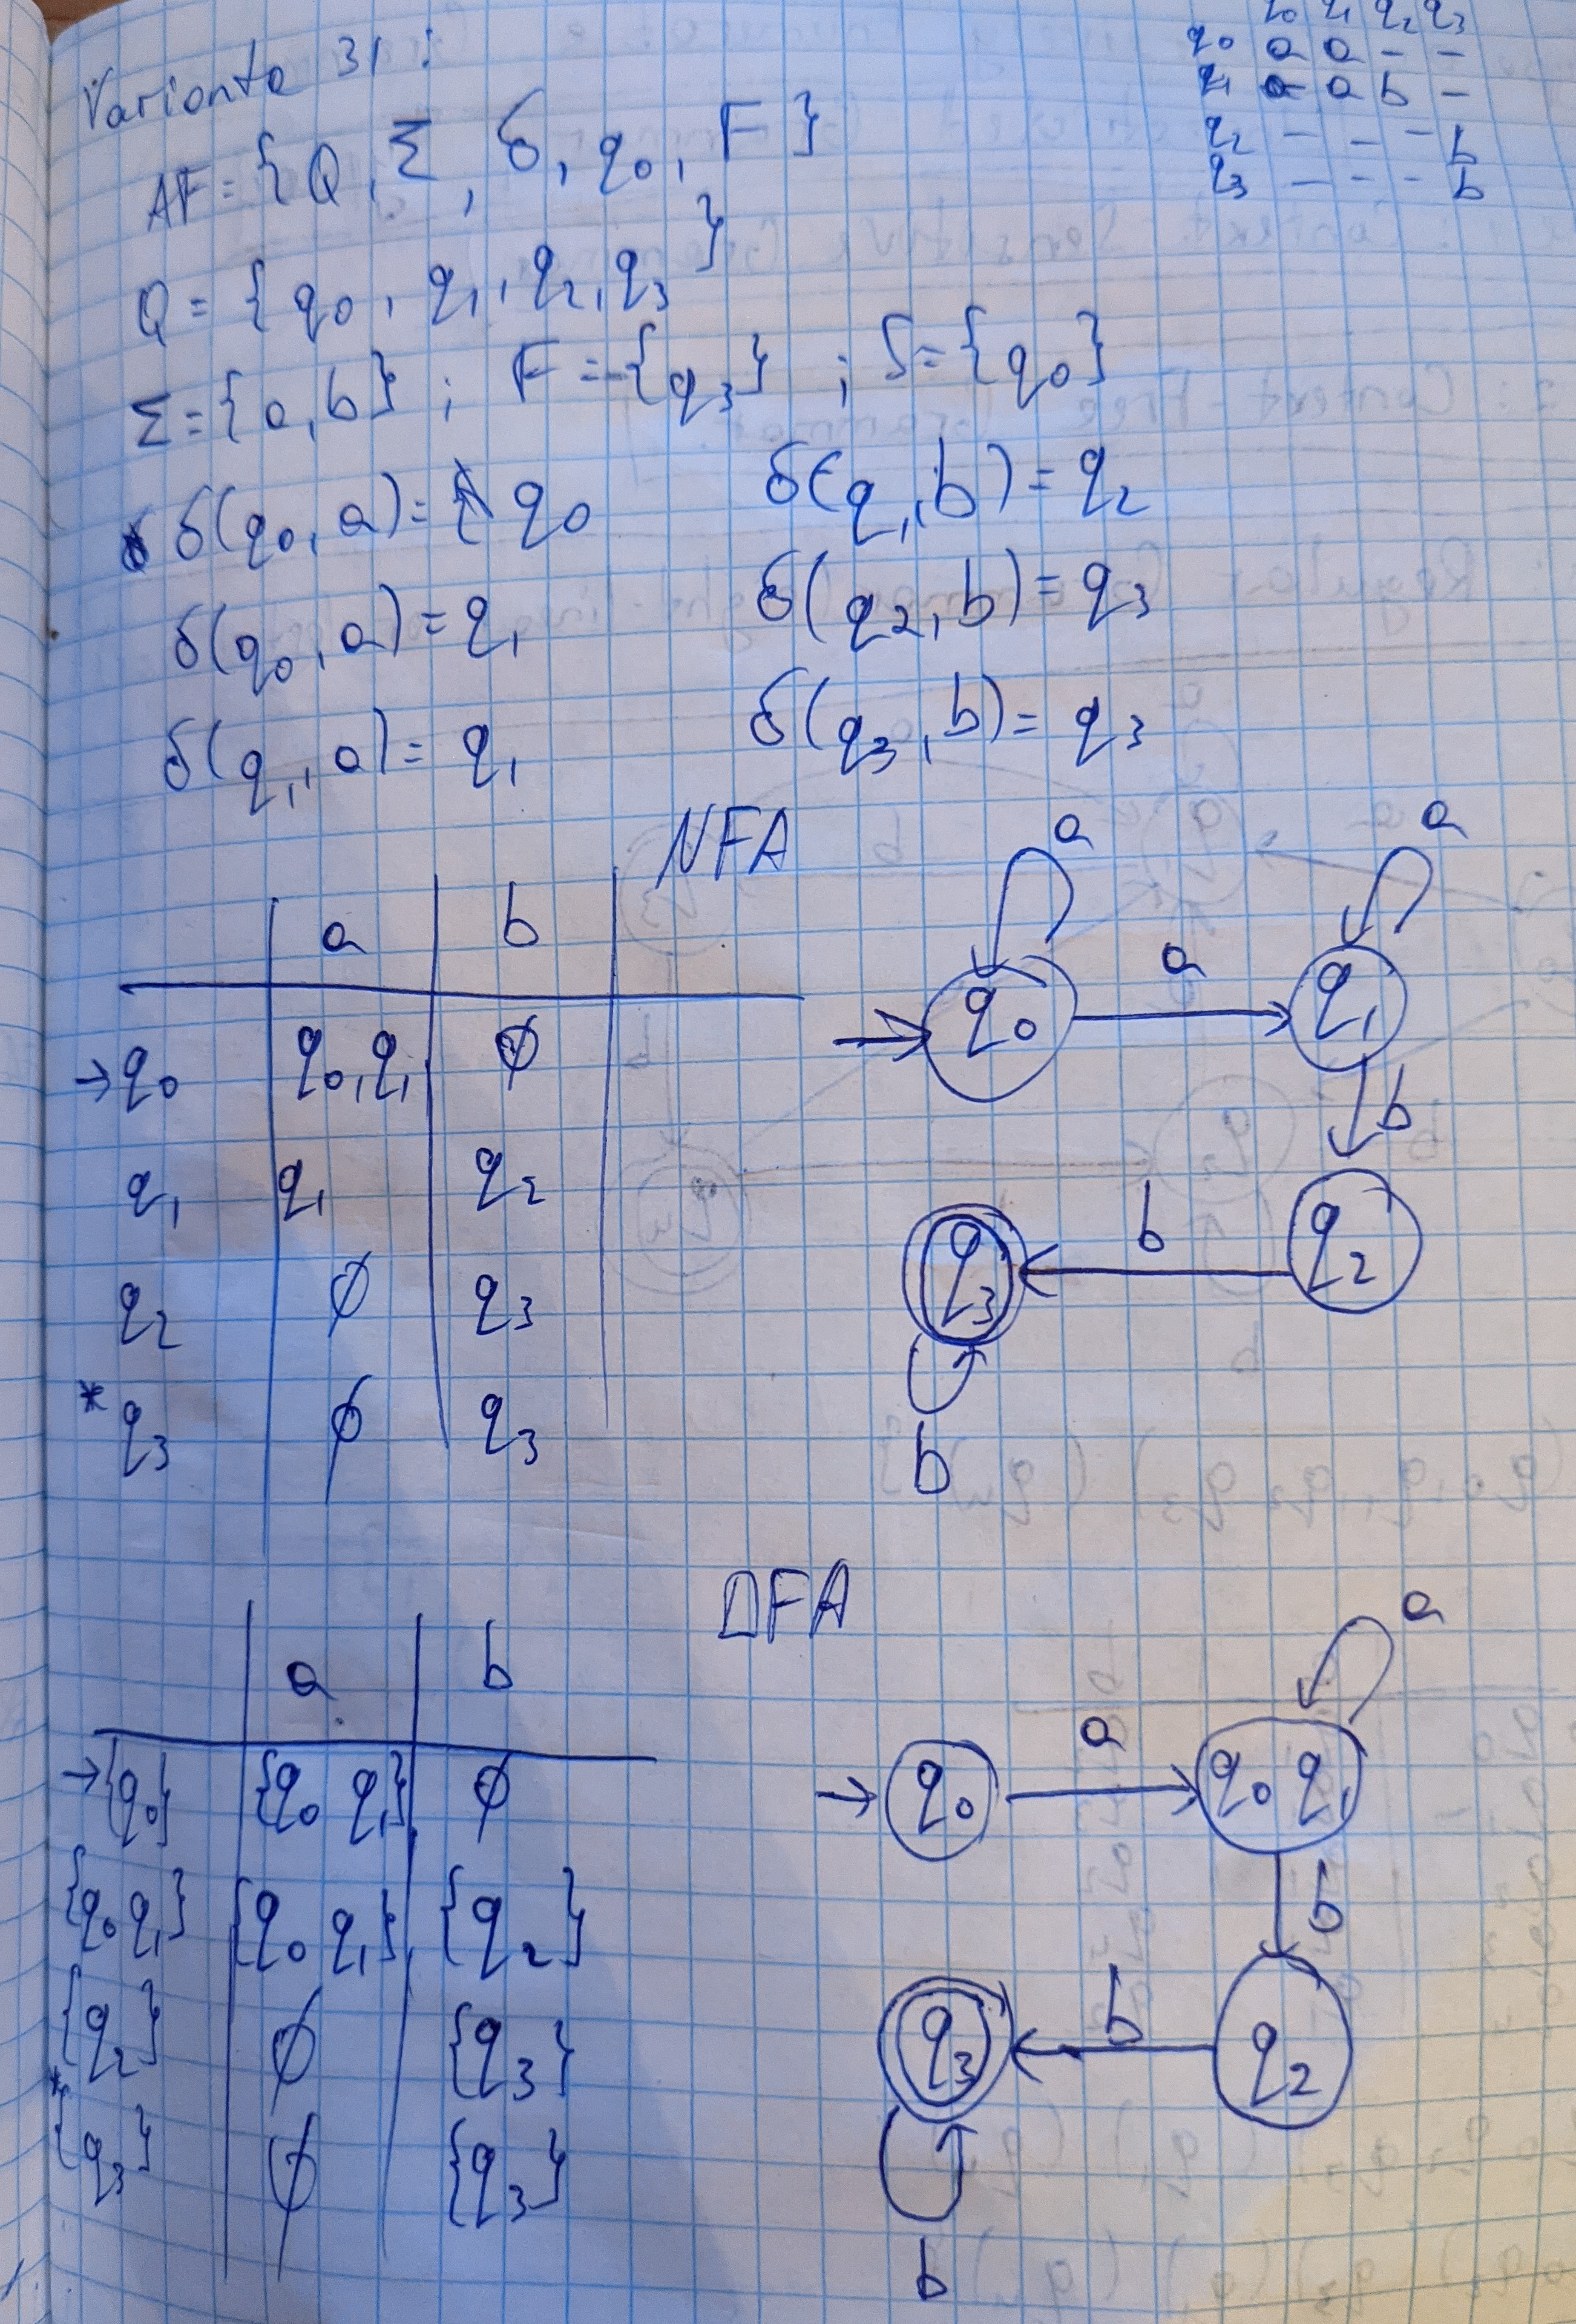 Varianta 31:
q0 q1 q2 q3
q0 a a - -
q1 a a b -
q2 - - - b
q3 - - - b
AF = {Q, Σ, δ, q0, F}
Q = {q0, q1, q2, q3}
Σ = {a, b} ; F = {q3} ; S = {q0}
δ(q0, a) = q0 δ(q1, b) = q2
δ(q0, a) = q1 δ(q2, b) = q3
δ(q1, a) = q1 δ(q3, b) = q3
NFA
a b
→ q0 q0, q1 ∅
q1 q1 q2
q2 ∅ q3
* q3 ∅ q3
a a
q0 a q1
b
q3 b q2
b
DFA
a b
→ {q0} {q0 q1} ∅
{q0 q1} {q0 q1} {q2}
{q2} ∅ {q3}
* {q3} ∅ {q3}
a
q0 a q0 q1
b
q3 b q2
b